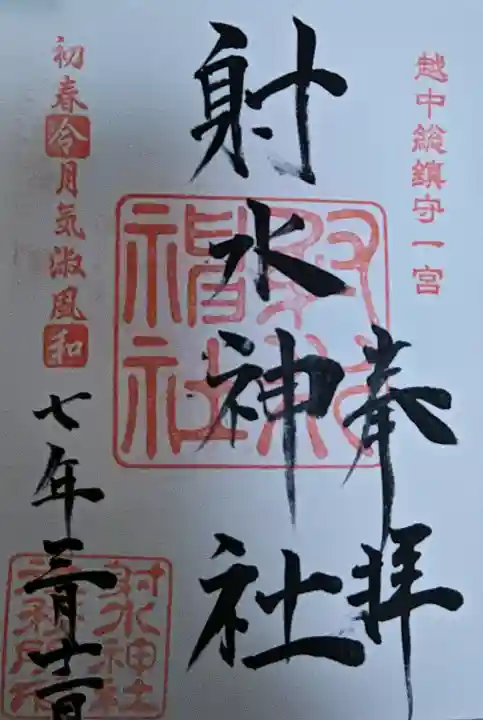 越中総鎮守一宮
奉拝
射水神社
初春令月気淑風和
七年三月十一日
射水神社